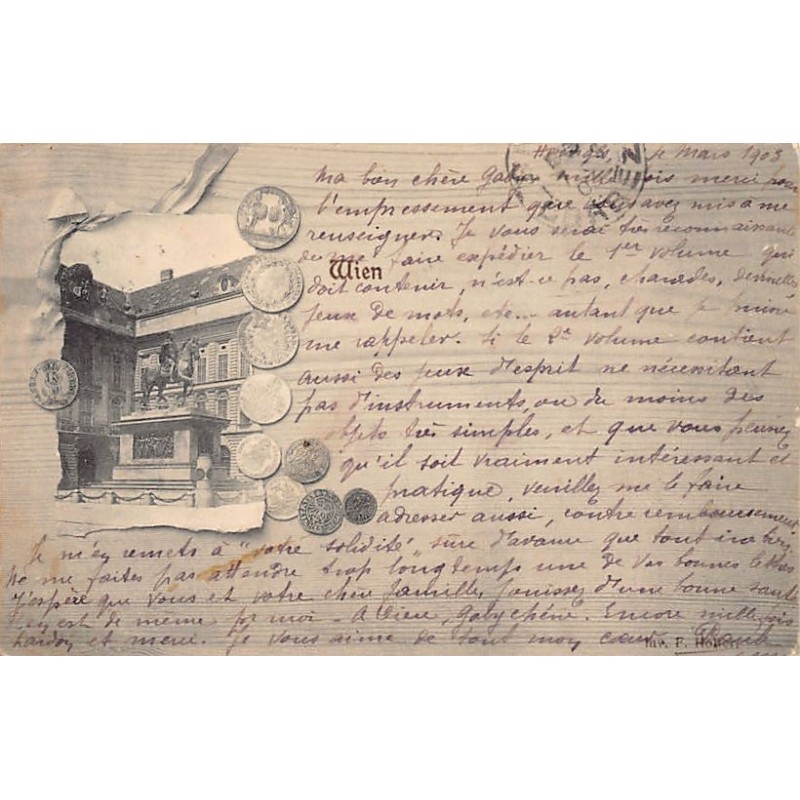 4 Mars 1903
Ma bien chère Gaby mille fois merci pour
l'empressement que vous avez mis à me
renseigner. Je vous serai très reconnaissante
de me faire expédier le 1er volume qui
Wien
doit contenir, n'est-ce pas, charades, devinettes
jeux de mots, etc... autant que je puisse
me rappeler. Si le 2e volume contient
aussi des jeux d'esprit ne nécessitant
pas d'instruments, ou du moins des
objets très simples, et que vous pensiez
qu'il soit vraiment intéressant et
pratique, veuillez me le faire
adresser aussi, contre remboursement
Je m'en remets à "votre solidité" sûre d'avance que tout ira bien
Ne me faites pas attendre trop longtemps une de vos bonnes lettres
J'espère que vous et votre chère famille, jouissez d'une bonne santé
en est de même pr moi - A Dieu, Gaby chérie. Encore mille fois
pardon et merci. Je vous aime de tout mon cœur
Inv. F.